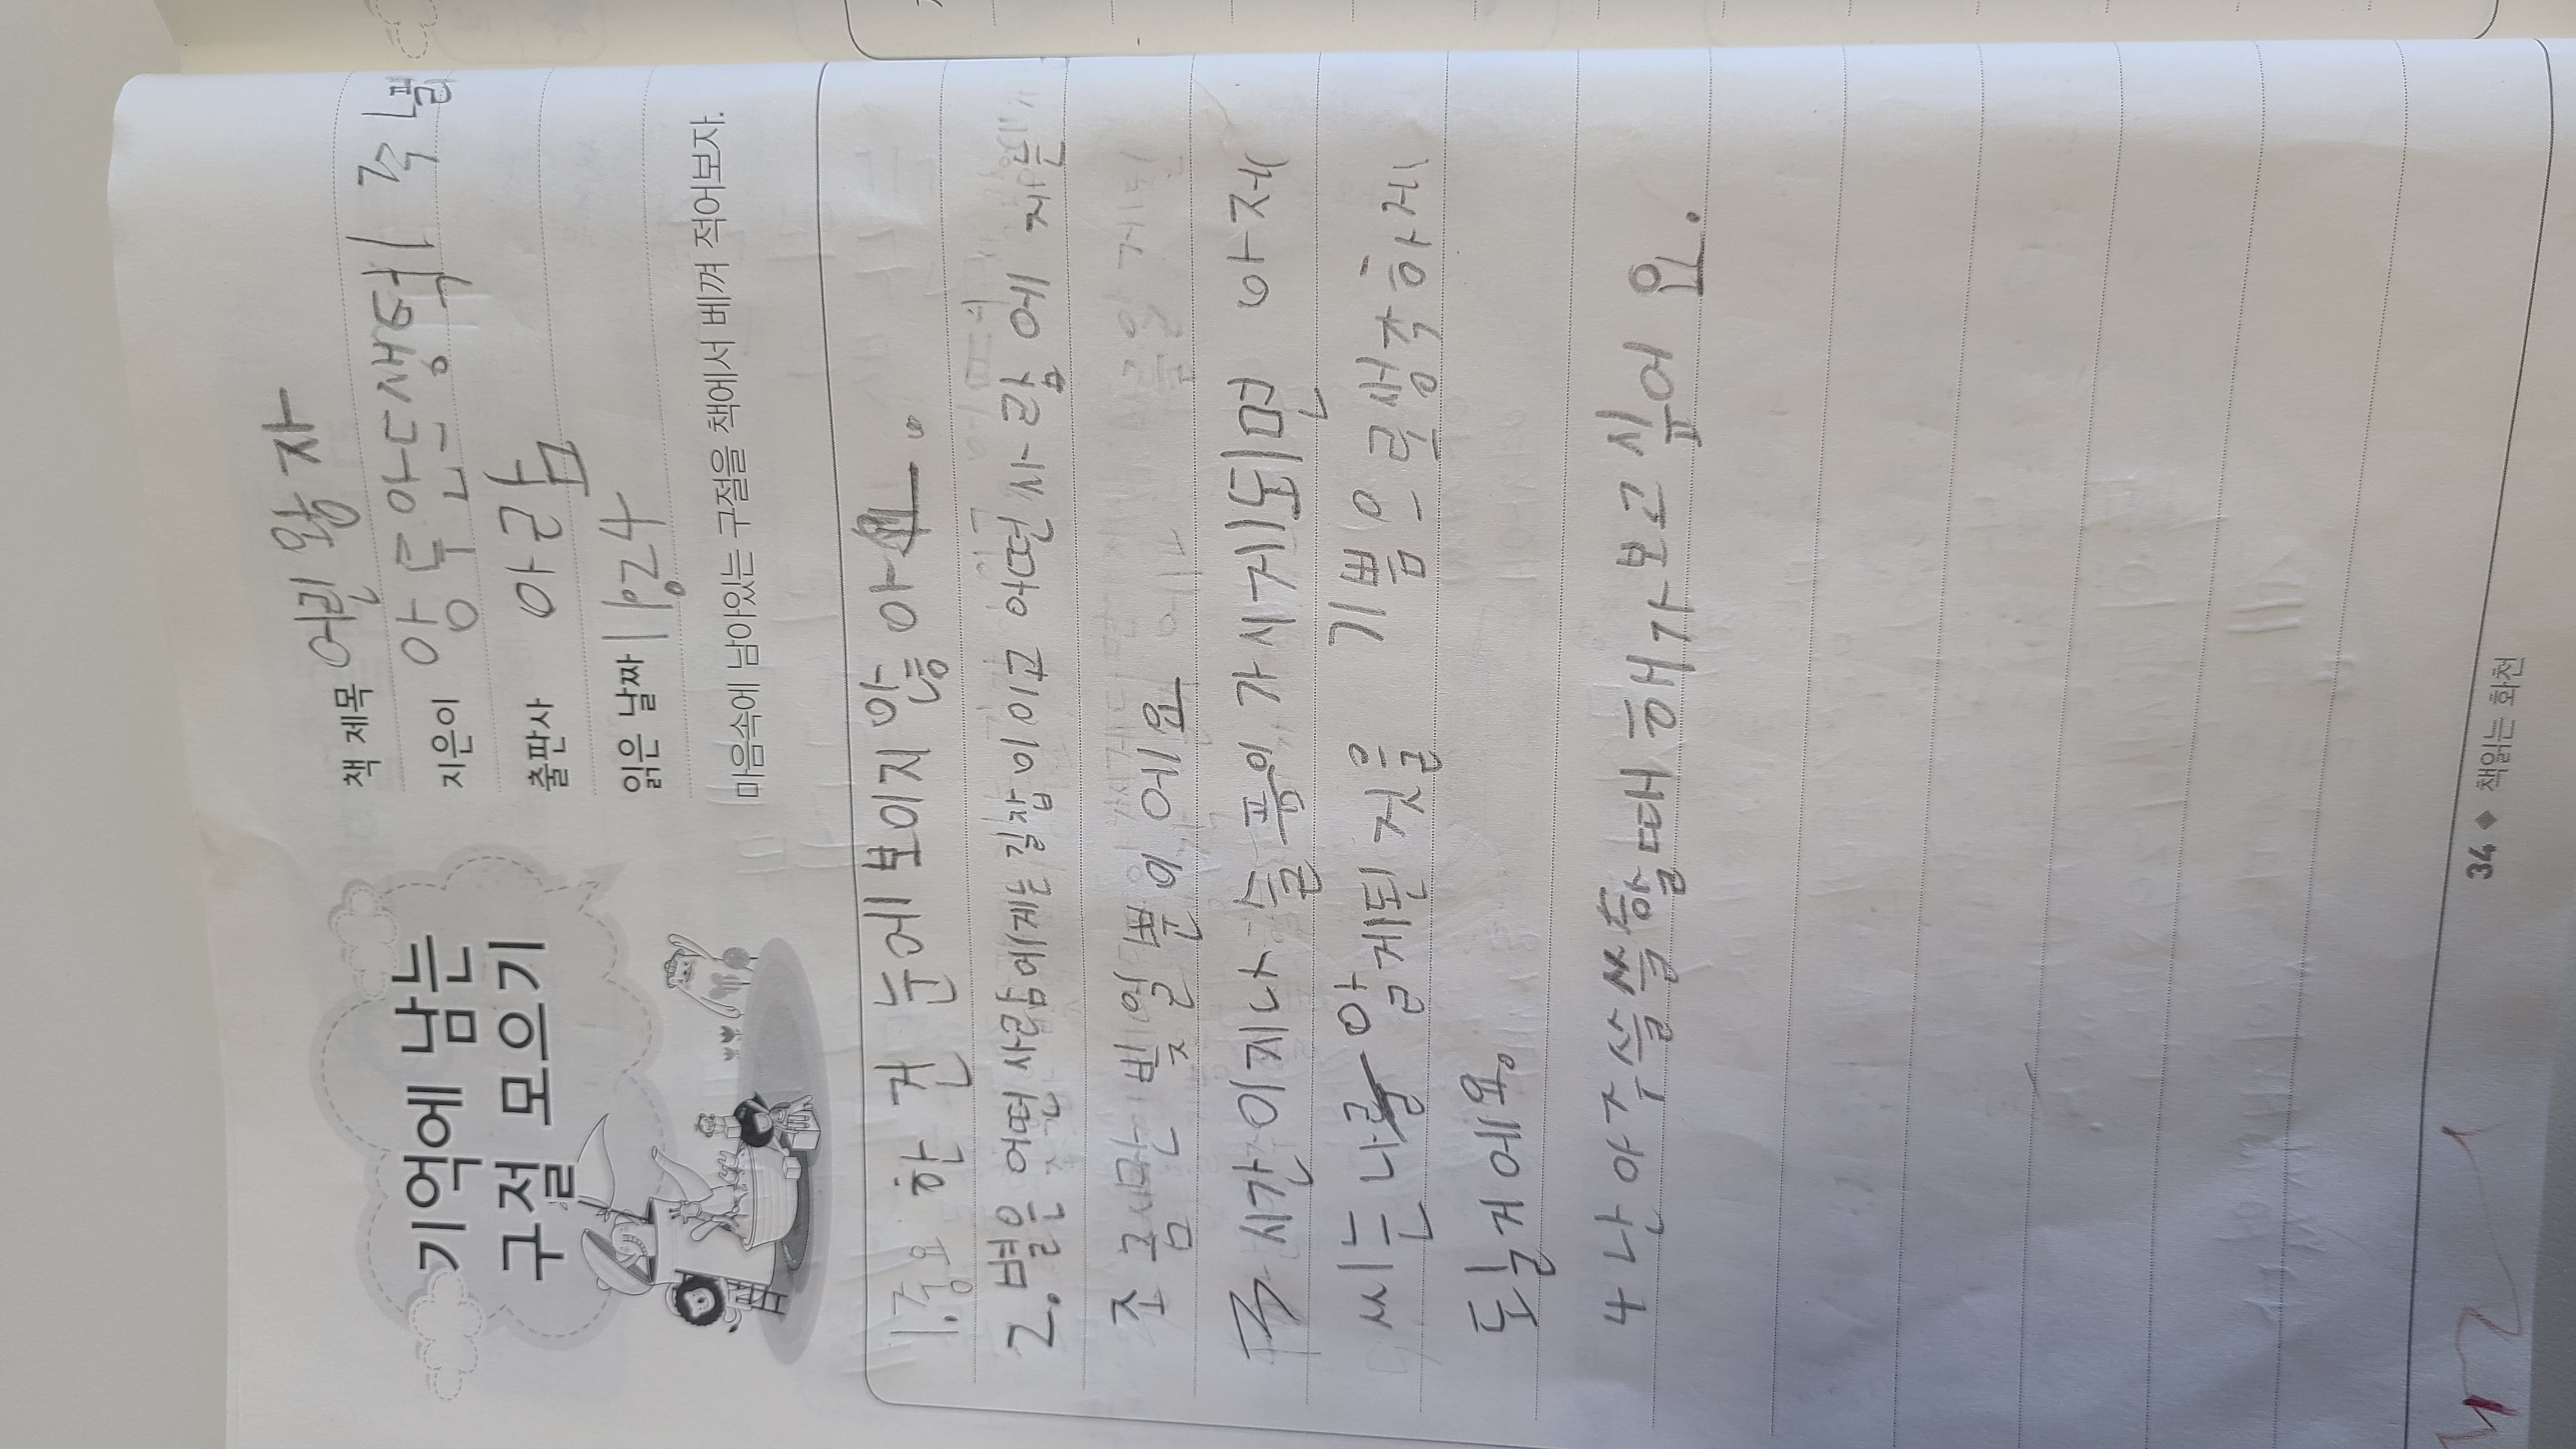 기억에 남는
구절 모으기
책 제목 어린 왕자
지은이 앙투안드생텍쥐
출판사 아람
읽은 날짜 11.24
마음속에 남아있는 구절을 책에서 베껴 적어보자.
1. 중요한 건 눈에 보이지 않아요.
2. 별은 어떤 사람에게는 길잡이이고 어떤 사람에게는
조금만 빛일뿐이에요
3 시간이지나 슬픔이 가시게되면 아저
씨는 나를 알게된 것을 기쁨으로생각하게
될거에요.
4 난 아주쓸쓸할때 해가보고싶어요.
34 ◆ 책읽는 화천